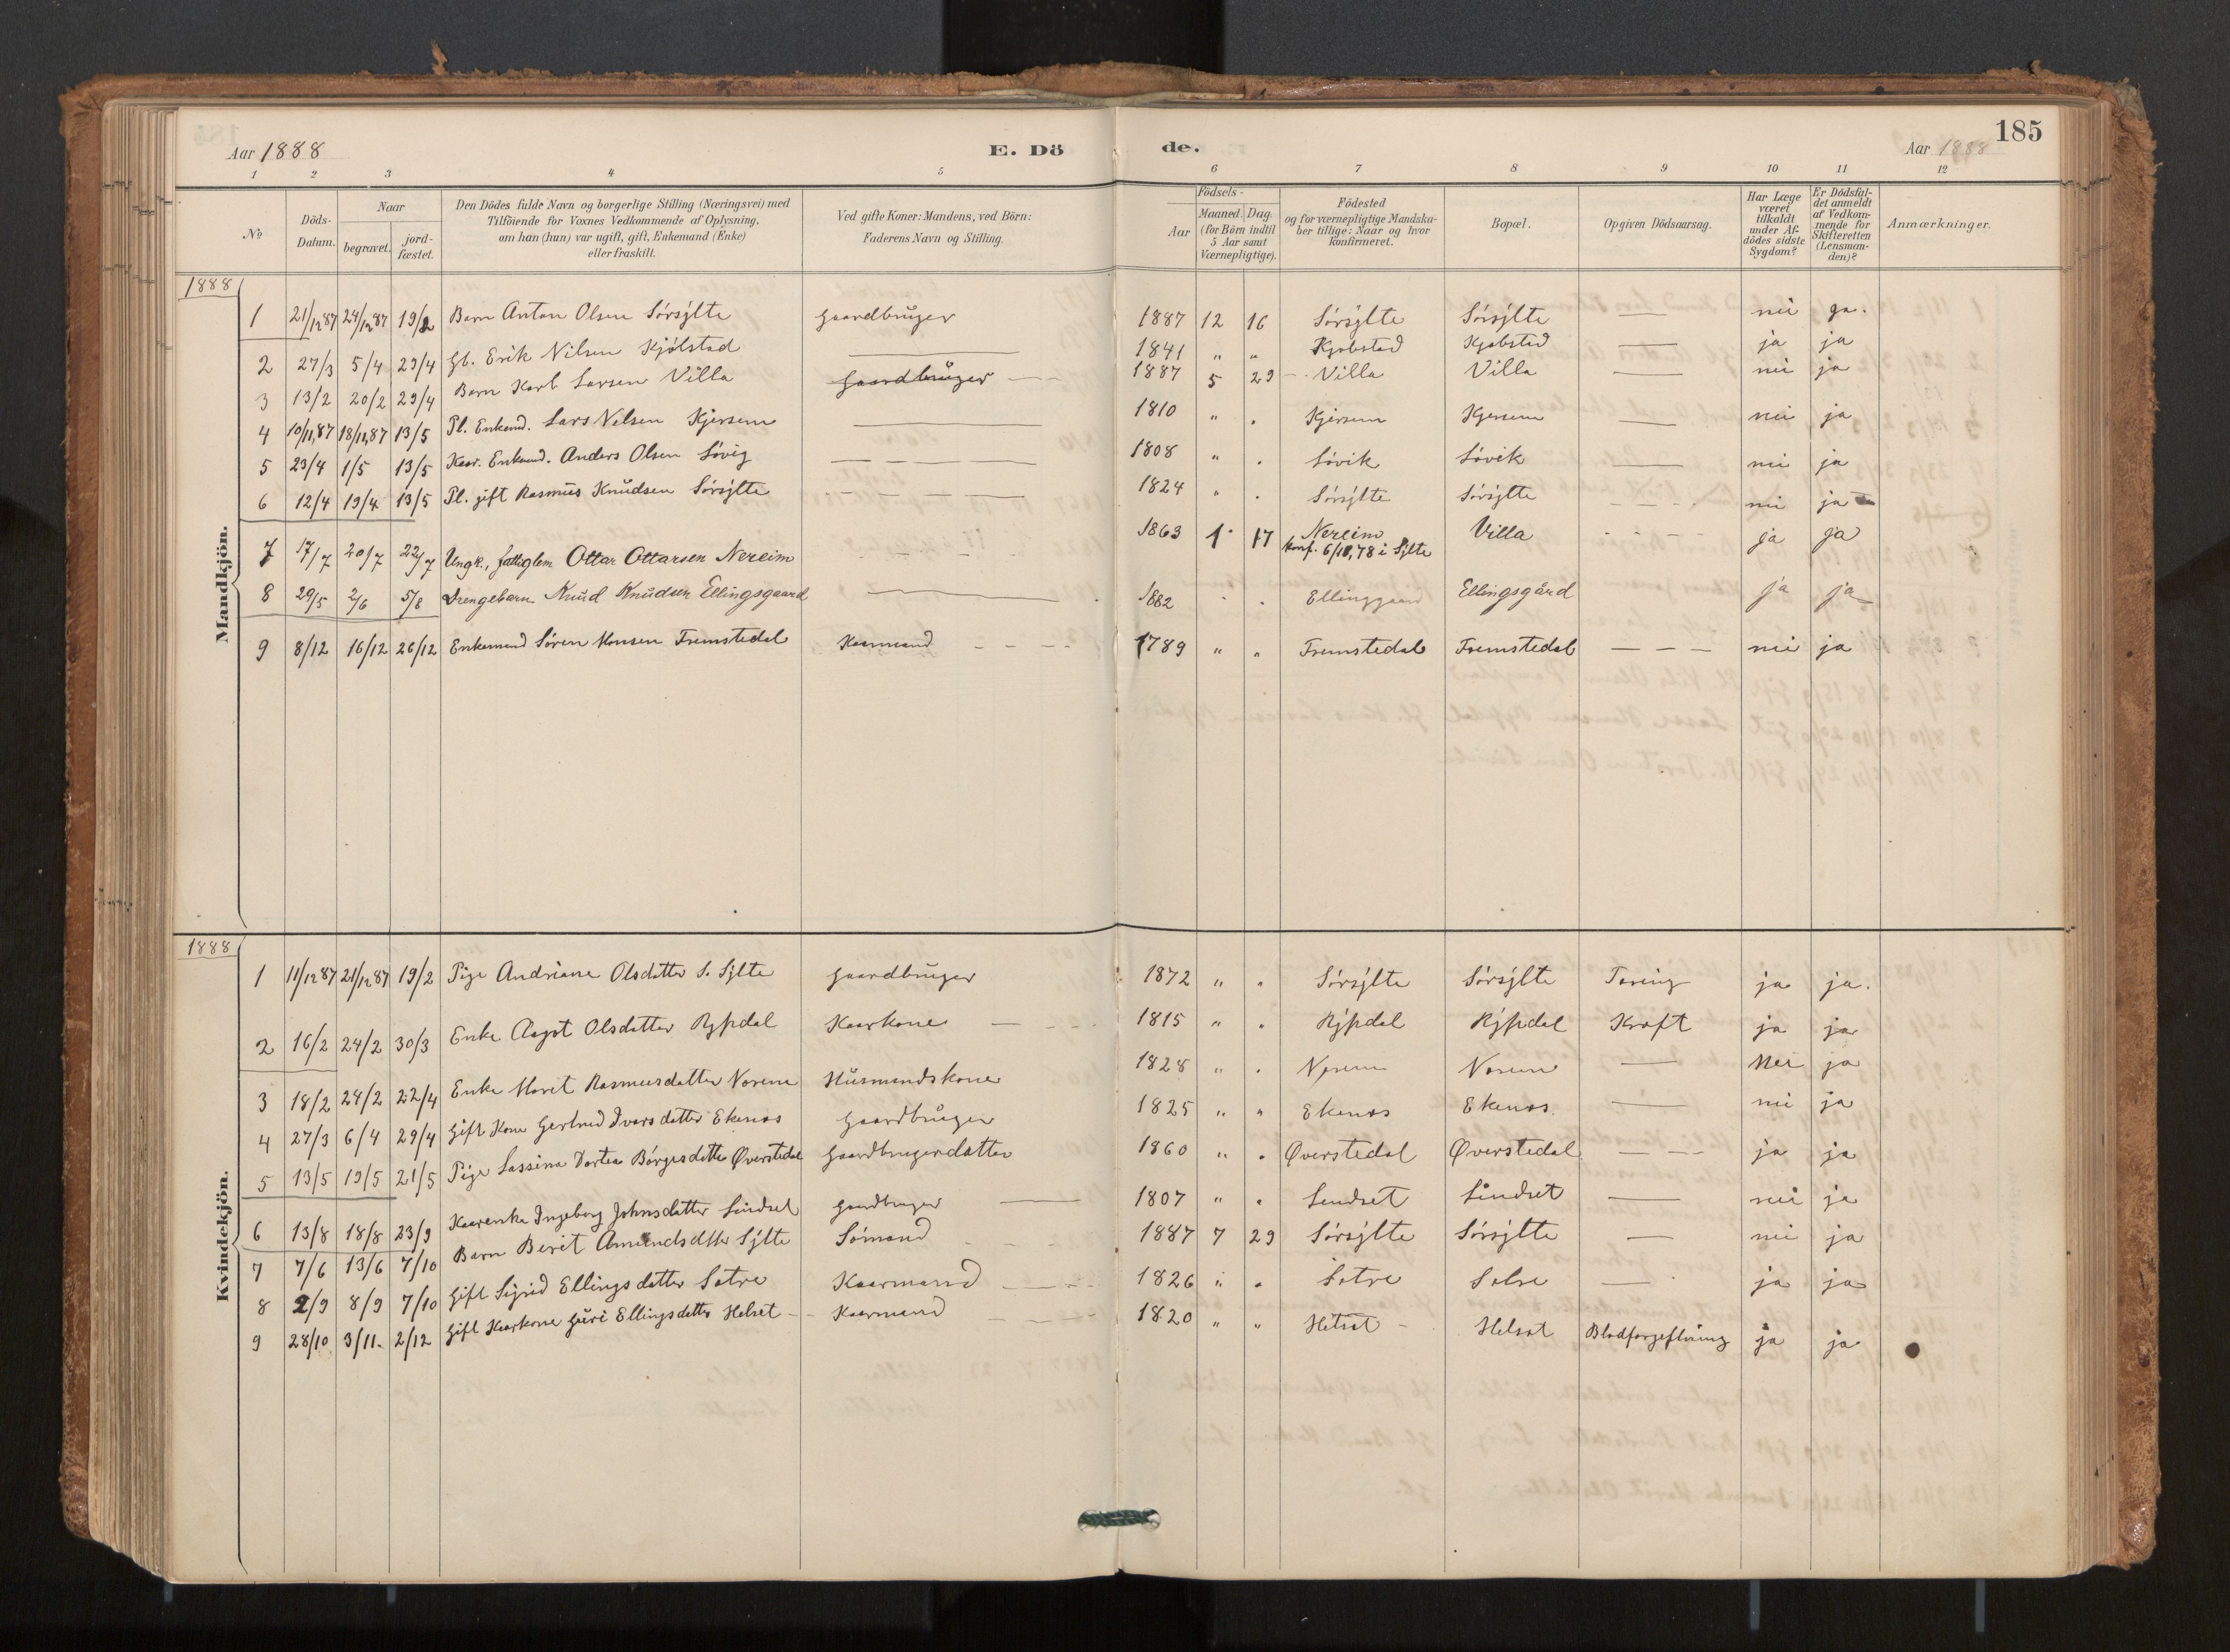 185
Aar 1888 E. Dö de. Aar 1888
1 2 3 4 5 6 7 8 9 10 11 12
No Döds-Datum. Naar begravet. jord-fæstet. Den Dödes fulde Navn og borgerlige Stilling (Næringsvei) med Tilföiende for Voxnes Vedkommende af Oplysning, om han (hun) var ugift, gift, Enkemand (Enke) eller fraskilt. Ved gifte Koner: Mandens, ved Börn: Faderens Navn og Stilling. Födsels- Aar Maaned. Dag. (for Börn indtil 5 Aar samt Værnepligtige). Födested og for værnepligtige Mandskaber tillige: Naar og hvor konfirmeret. Bopæl. Opgiven Dödsaarsag. Har Læge været tilkaldt under Afdödes sidste Sygdom? Er Dödsfaldet anmeldt af Vedkommende for Skifteretten (Lensmanden)? Anmærkninger.
Mandkjön.
1888
1 21/12 87 24/12 87 19/2 Barn Anton Olsen Sørsylte Gaardbruger 1887 12 16 Sørsylte Sørsylte — nei ja.
2 27/3 5/4 29/4 Gb. Erik Nilsen Kjølstad — 1841 „ „ Kjølstad Kjølstad — ja ja
3 13/2 20/2 29/4 Barn Karl Larsen Villa Gaardbruger — 1887 5 29 Villa Villa — nei ja
4 10/11,87 18/11,87 13/5 Pl. Enkemd. Lars Nilsen Kjersem — 1810 „ . Kjersem Kjersem — nei ja
5 23/4 1/5 13/5 Kaar. Enkemd. Anders Olsen Søvig — 1808 „ . Søvik Søvik — nei ja
6 12/4 19/4 13/5 Pl. gift Rasmus Knudsen Sørsylte — 1824 „ . Sørsylte Sørsylte — nei ja
7 17/7 20/7 22/7 Ungk., fattiglem Ottar Ottarsen Nereim — 1863 1 17 Nereim Villa — ja ja
konf. 6/10,78 i Sylte
8 29/5 2/6 5/8 Drengebarn Knud Knudsen Ellingsgaard — 1882 „ . Ellinggaard Ellingsgård ja ja
9 8/12 16/12 26/12 Enkemand Søren Monsen Fremstedal Kaarmand — 1789 „ „ Fremstedal Fremstedal — nei ja
Kvindekjön.
1888
1 11/12 87 21/12 87 19/2 Pige Andriane Olsdatter S. Sylte Gaardbruger 1872 „ „ Sørsylte Sørsylte Tæring ja ja.
2 16/2 24/2 30/3 Enke Aagot Olsdatter Rypdal Kaarkone — 1815 „ „ Rypdal Rypdal Kræft ja ja
3 18/2 24/2 22/4 Enke Marit Rasmusdatter Norem Husmandskone 1828 „ . Norem Norem — Nei ja
4 27/3 6/4 29/4 Gift Kone Gertrud Ivarsdatter Ekenæs Gaardbruger 1825 „ „ Ekenæs Ekenæs. — nei ja
5 13/5 19/5 21/5 Pige Lassina Dortea Børgesdatter Øverstedal Gaardbrugerdatter 1860 „ „ Øverstedal Øverstedal — ja ja
6 13/8 18/8 23/9 Kaarenke Ingeborg Johnsdatter Lindset Gaardbruger — 1807 „ „ Lindset Lindset — nei ja
7 7/6 13/6 7/10 Barn Berit Amundsdtter Sylte Sømand — 1887 7 29 Sørsylte Sørsylte — nei ja
8 2/9 8/9 7/10 Gift Sigrid Ellingsdatter Sætre Kaarmand — 1826 „ „ Sætre Sætre — ja ja
9 28/10 3/11. 2/12 Gift Kaarkone Guri Ellingsdatter Helset — Kaarmand — 1820 „ „ Helset — Helset Blodforgeftning ja ja